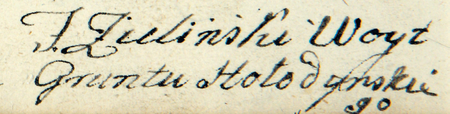 J Zieliński Woyt
Gruntu Hołodyńskie
go